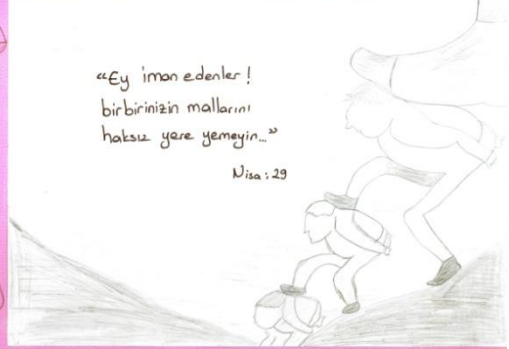 “Ey iman edenler!
birbirinizin mallarını
haksız yere yemeyin...”
Nisa: 29